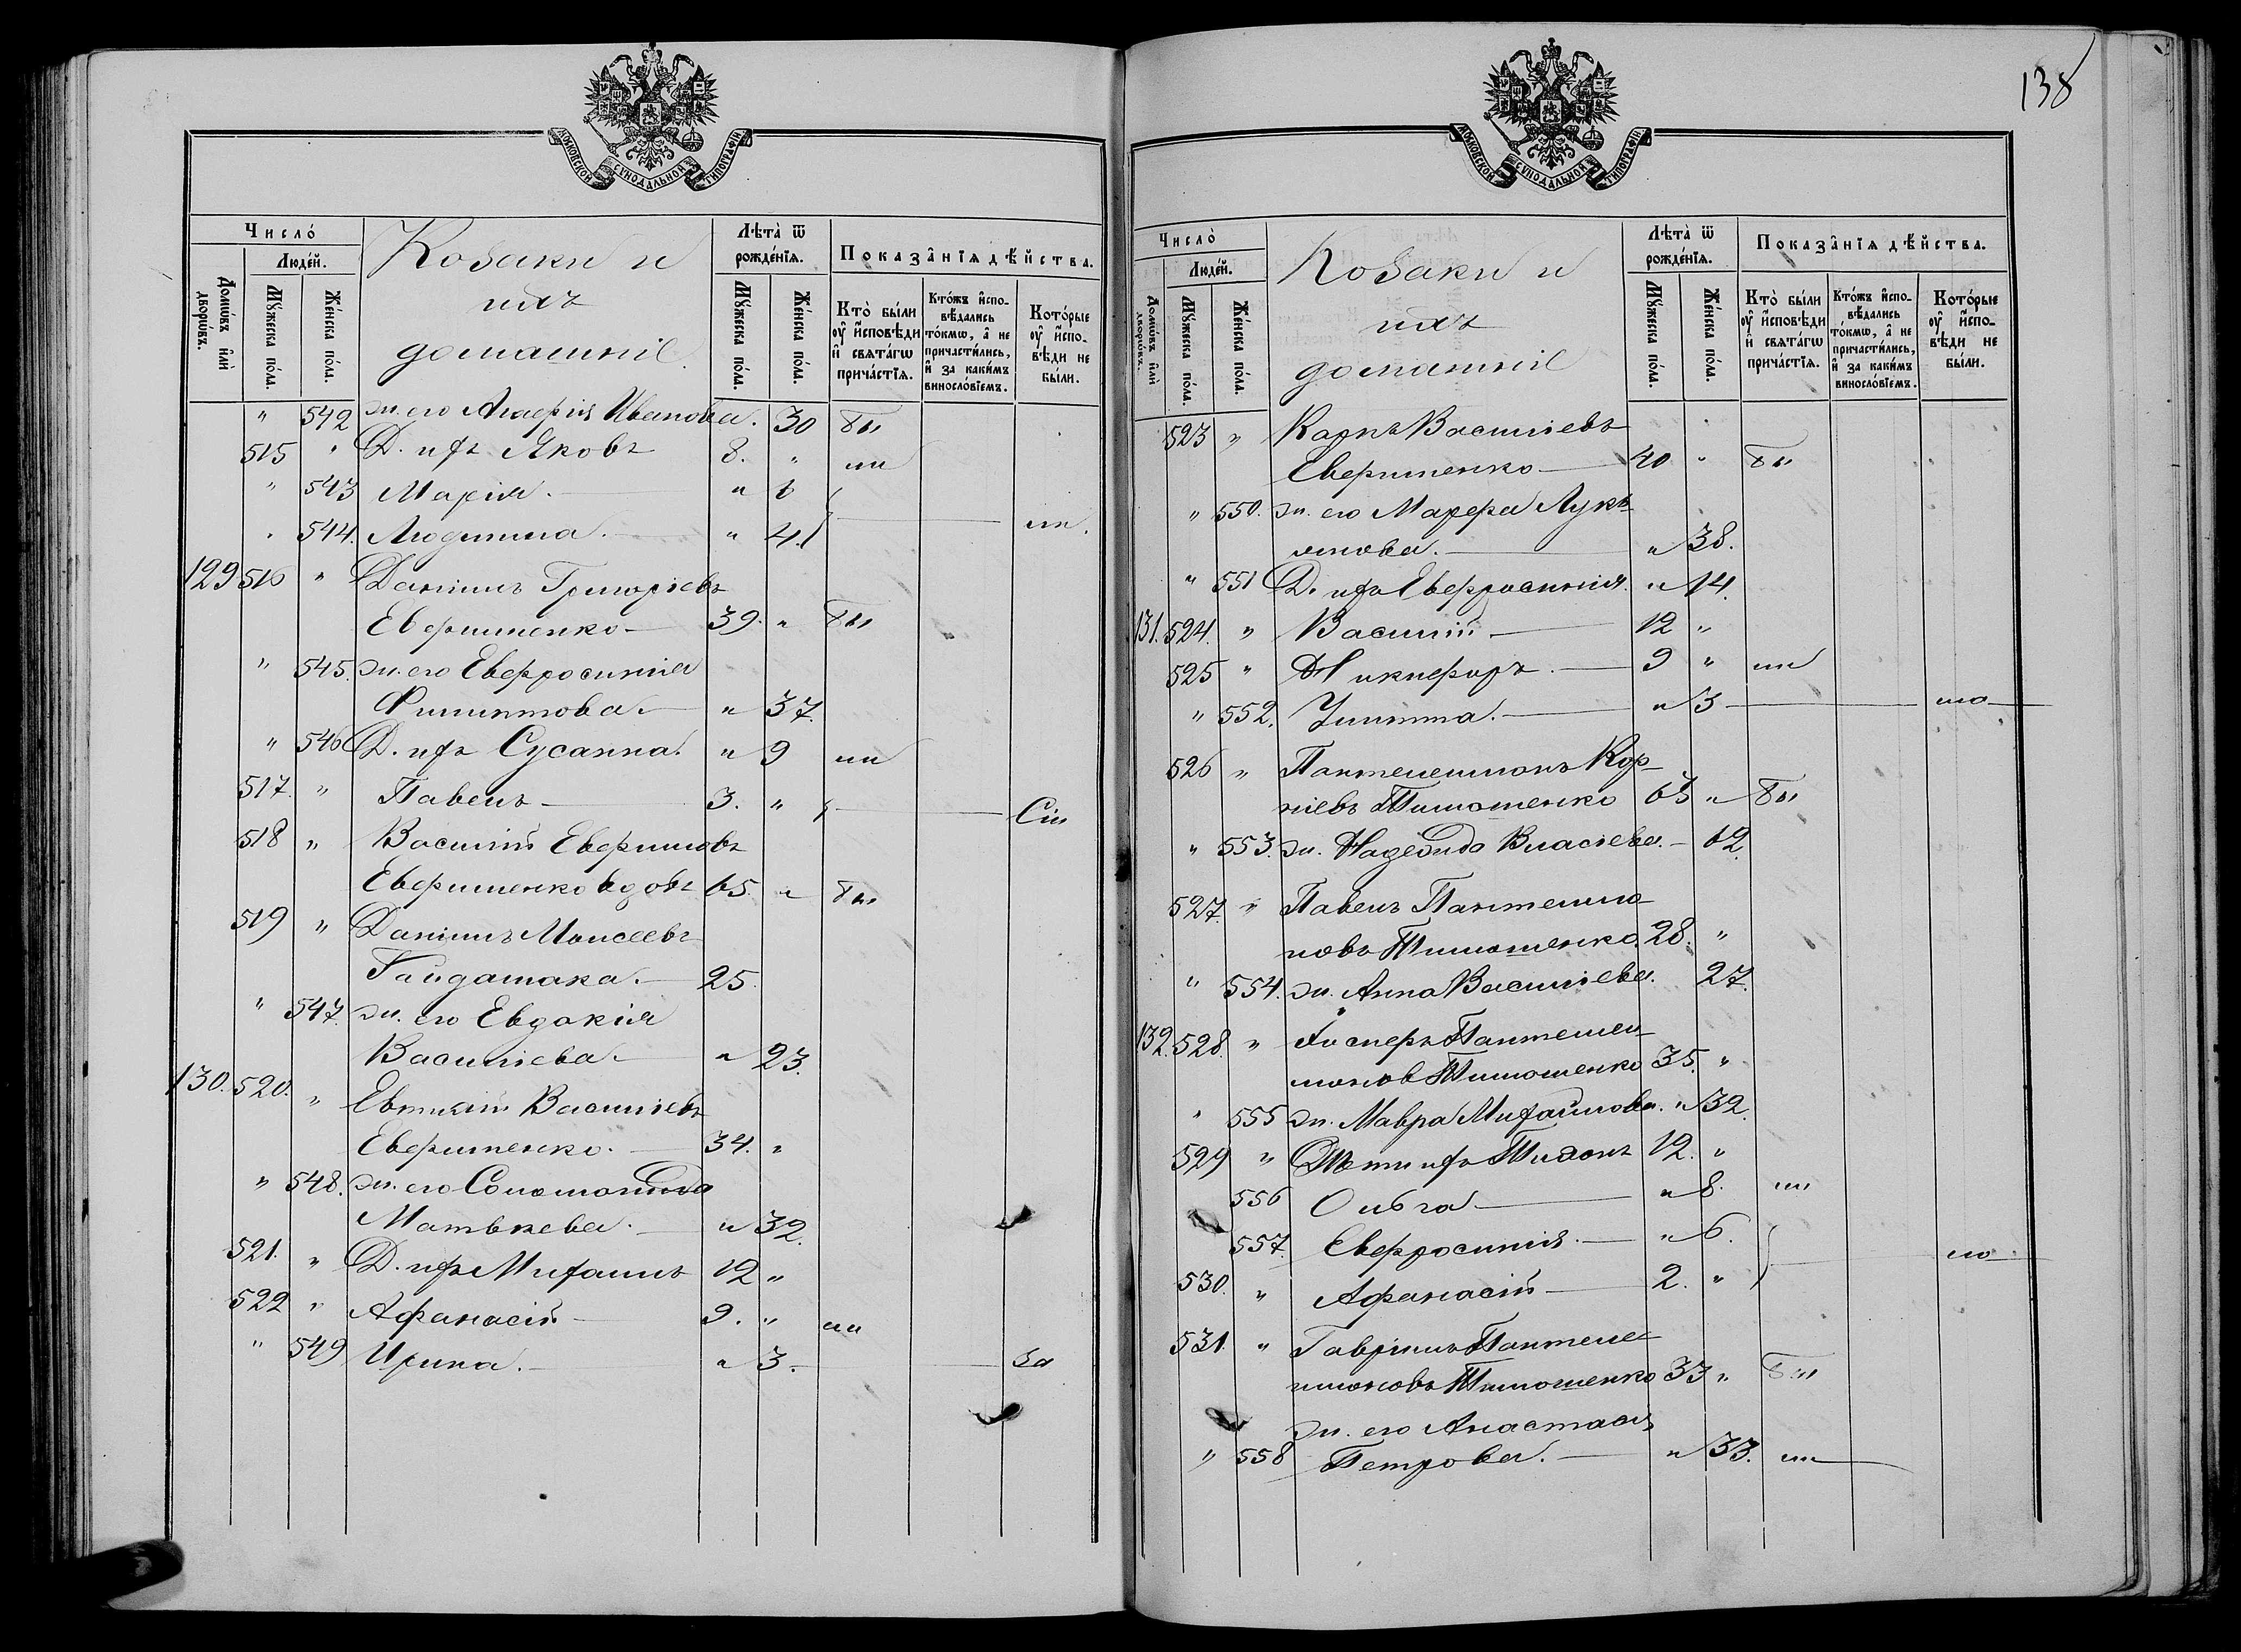 138
МОСКОВСКОЙ СѴНОДАЛЬНОЙ ТИПОГРАФІИ
Число̀
Людéй.
Домѡ́въ и҆лѝ дворѡ́въ.
Мꙋ́жеска по́ла.
Же́нска по́ла.
Козаки и
ихъ
домашніе
Лѣта̀ ѿ рождéнїѧ.
Мꙋ́жеска по́ла.
Же́нска по́ла.
Показа̂нїѧ дѣ́йства.
Кто̀ бы́ли ᲂу҆ и҆сповѣди и҆ свѧта́гѡ прича́стїѧ.
Кто́жъ и҆спо-вѣдались то́кмѡ, а҆ не причасти́лись, и҆ за каки́мъ винослóвїемъ.
Кото́рые ᲂу҆ и҆спо-вѣди не бы́ли.
" 542 ж. его Іванова. 30 бы
515 " Д. ихъ Яковъ 8. " ли
" 543 Марія. " 6
" 544. Людмила. " 4.
129 516 " Даніилъ Григоріевъ
Евфименко 39. " бы
" 545. ж. его Евфросинія
Филиппова. " 37.
" 546 Д. ихъ Сусанна. " 9 ли
517. " Павелъ 3. "
518 " Василій Евфимовъ
Евфименко вдовъ 65. " бы
519 " Даніилъ Моисеевъ
Гайдамака. 25.
" 547. ж. его Евдокія
Василіева. " 23.
130. 520. " Евтихій Василіевъ
Евфименко. 34. "
" 548. ж. его Соломонида
Матвѣева. " 32.
521. " Д. ихъ Михаилъ 12 "
522 " Афанасій 9. " ли
" 549 Ирина. " 3. за
МОСКОВСКОЙ СѴНОДАЛЬНОЙ ТИПОГРАФІИ
Число̀
Людéй.
Домѡ́въ и҆лѝ дворѡ́въ.
Мꙋ́жеска по́ла.
Же́нска по́ла.
Козаки и
ихъ
домашніе
Лѣта̀ ѿ рождéнїѧ.
Мꙋ́жеска по́ла.
Же́нска по́ла.
Показа̂нїѧ дѣ́йства.
Кто̀ бы́ли ᲂу҆ и҆сповѣди и҆ свѧта́гѡ прича́стїѧ.
Кто́жъ и҆спо-вѣдались то́кмѡ, а҆ не причасти́лись, и҆ за каки́мъ винослóвїемъ.
Кото́рые ᲂу҆ и҆спо-вѣди не бы́ли.
523 " Карпъ Василіевъ
Евфименко 40 " бы
" 550. ж. его Марфа Лукі-
янова. " 38.
" 551 Д. ихъ Евфросинія. " 14.
131. 524. " Василій 12 "
525 " Никифоръ. 9 " ли
" 552. Улитта. " 3 мо
526 " Пантелеимонъ Кор-
ніевъ Тимошенко 63 " бы
" 553. ж. Надежда Власіева. 62.
527. " Павелъ Пантелимо-
новъ Тимошенко. 28. "
" 554. ж. Анна Василіева. 27.
132. 528. " Іосифъ Пантелеи-
моновъ Тимошенко 35. "
" 555 ж. Мавра Михайлова. " 32.
529 " Дѣти ихъ Тихонъ 12. "
556 Ольга " 8. ли
557. Евфросинія. " 6.
530. " Афанасій 2. " мо
531. " Гавріилъ Пантеле-
имоновъ Тимошенко 33 " бы
ж. его Анастасія
" 558 Петрова. " 33. ли